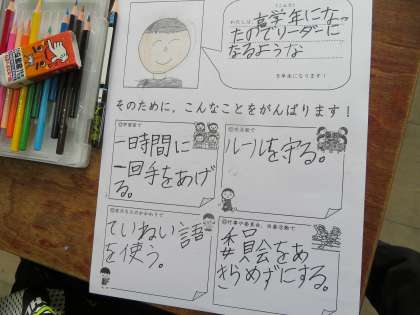 わたしは 高学年になっ
たのでリーダーに
なるような
５年生になります！
そのために、こんなことをがんばります！
①学習面で
一時間に
一回手をあげ
る。
②生活面で
ルールを守る。
③友だちとのかかわりで
ていねい語
を使う。
④行事や委員会、当番活動で
委員会をあ
きらめずにする。